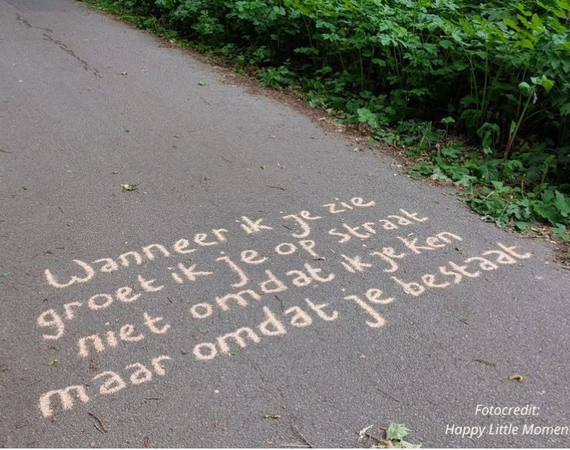 Wanneer ik je zie
groet ik je op straat
niet omdat ik je ken
maar omdat je bestaat
Fotocredit:
Happy Little Momen